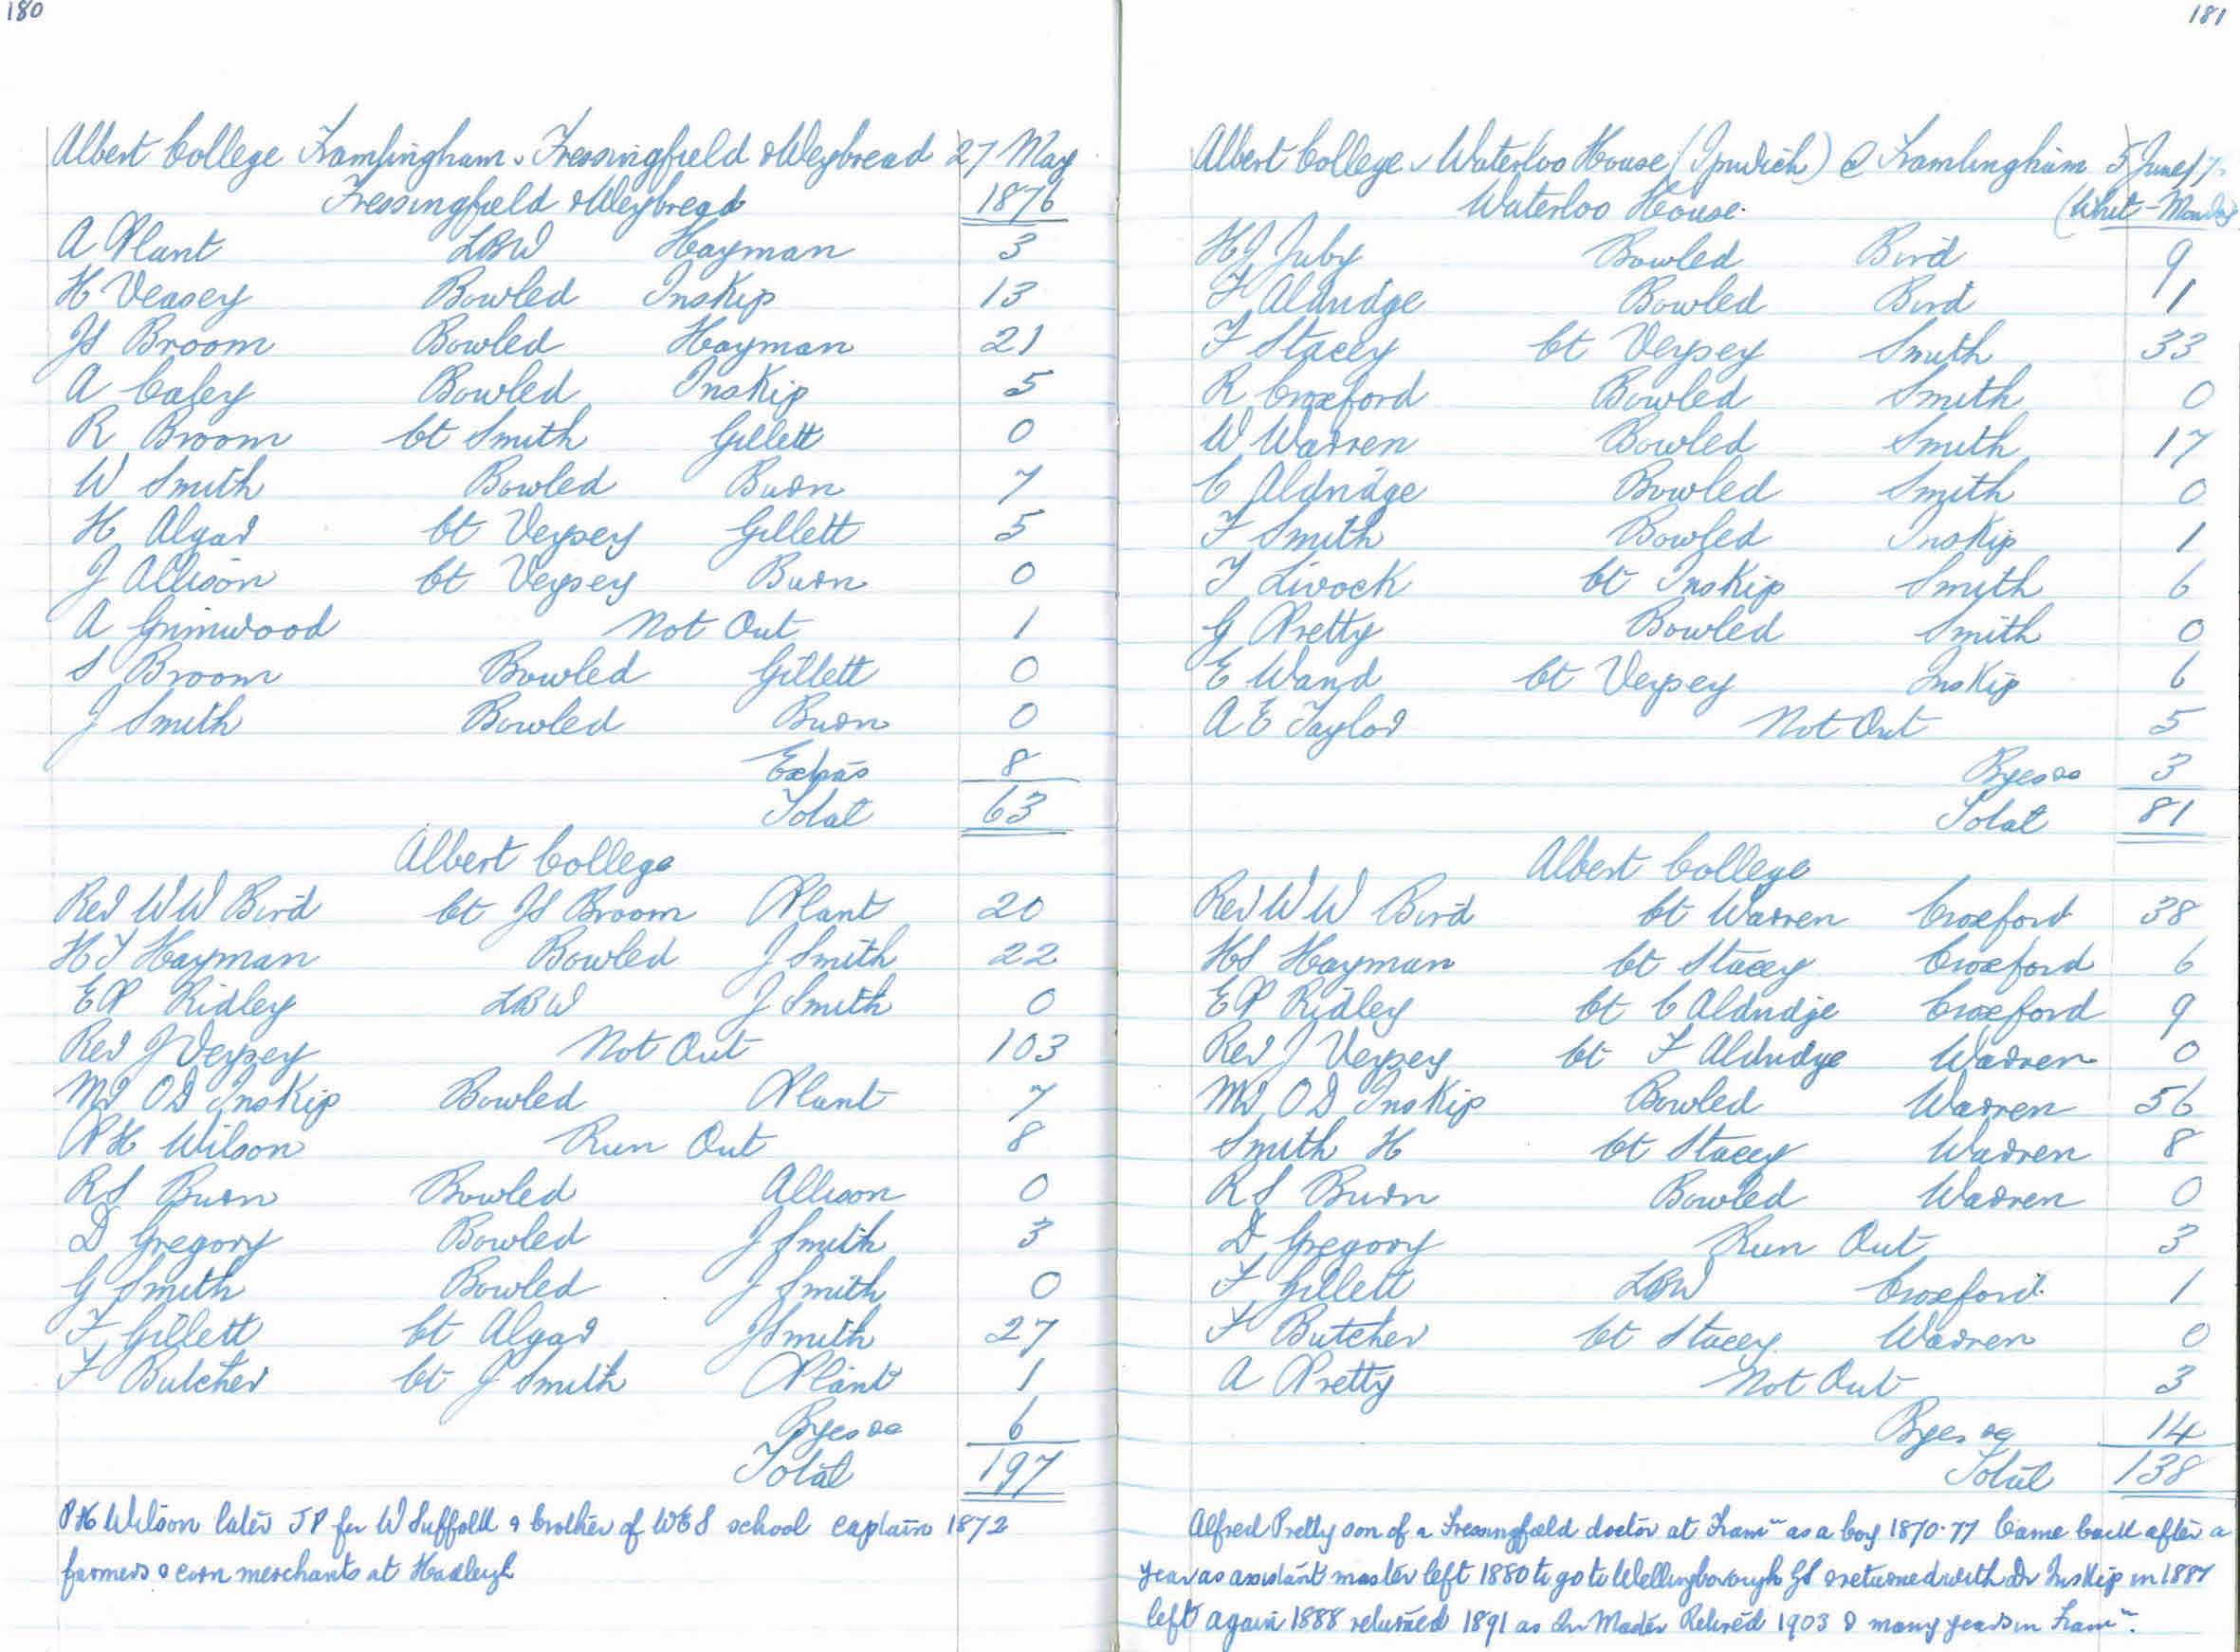 180
Albert College Framlingham v Fressingfield & Weybread 27 May
Fressingfield & Weybread 1876
A Plant LBW Hayman 3
H Veasey Bowled Inskip 13
JS Broom Bowled Hayman 21
A Caley Bowled Inskip 5
R Broom Ct Smith Gillett 0
W Smith Bowled Burn 7
H Algar Ct Veysey Gillett 5
J Allison Ct Veysey Burn 0
A Grimwood Not Out 1
S Broom Bowled Gillett 0
J Smith Bowled Burn 0
Extras 8
Total 63
Albert College
Rev WW Bird Ct JS Broom Plant 20
HT Hayman Bowled J Smith 22
EP Ridley LBW J Smith 0
Rev J Veysey Not Out 103
Mr OD Inskip Bowled Plant 7
PH Wilson Run Out 8
RS Burn Bowled Allison 0
D Gregory Bowled J Smith 3
G Smith Bowled J Smith 0
F Gillett Ct Algar J Smith 27
F Butcher Ct J Smith Plant 1
Byes &c 6
Total 197
PH Wilson later JP for W Suffolk & brother of WES school captain 1872
farmers & corn merchants at Hadleigh
181
Albert College v Waterloo House (Ipwich) @ Framlingham 5 June/7
Waterloo House (Whit-Monday
HJ Juby Bowled Bird 9
F Aldridge Bowled Bird 1
F Stacey Ct Veysey Smith 33
R Croxford Bowled Smith 0
W Warren Bowled Smith 17
C Aldridge Bowled Smith 0
F Smith Bowled Inskip 1
T Livock Ct Inskip Smith 6
G Pretty Bowled Smith 0
E Wand Ct Veysey Inskip 6
A E Taylor Not Out 5
Byes &c 3
Total 81
Albert College
Rev WW Bird Ct Warren Croxford 38
HS Hayman Ct Stacey Croxford 6
EP Ridley Ct C Aldridje Croxford 9
Rev J Veysey Ct F Aldridge Warren 0
Mr OD Inskip Bowled Warren 56
Smith H Ct Stacey Warren 8
RS Burn Bowled Warren 0
D Gregory Run Out 3
F Gillett LBW Croxford 1
F Butcher Ct Stacey Warren 0
A Pretty Not Out 3
Byes &c 14
Total 138
Alfred Pretty son of a Fressingfield doctor at Framm as a boy 1870-77 Came back after a
year as assistant master left 1880 to go to Wellingborough GS & returned with Dr Inskip in 1887
left again 1888 returned 1891 as Jnr Master Retired 1903 & many years in Framm.